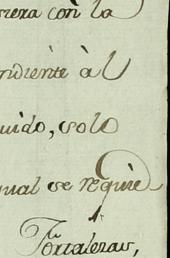 riera con la
ndiente àl
uido, solo
qual se requie
Fortalezas,